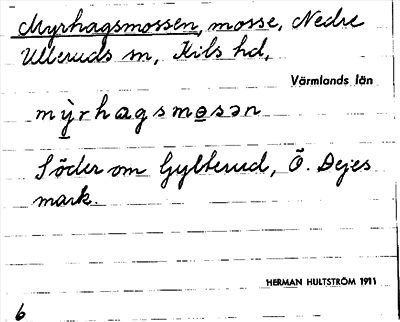 Myrhagsmossen, mosse, Nedre
Ulleruds sn, Kils hd,
Värmlands län
mỳrhagsmosən
Söder om Gylterud, Ö. Dejes
mark.
HERMAN HULTSTRÖM 1911
6